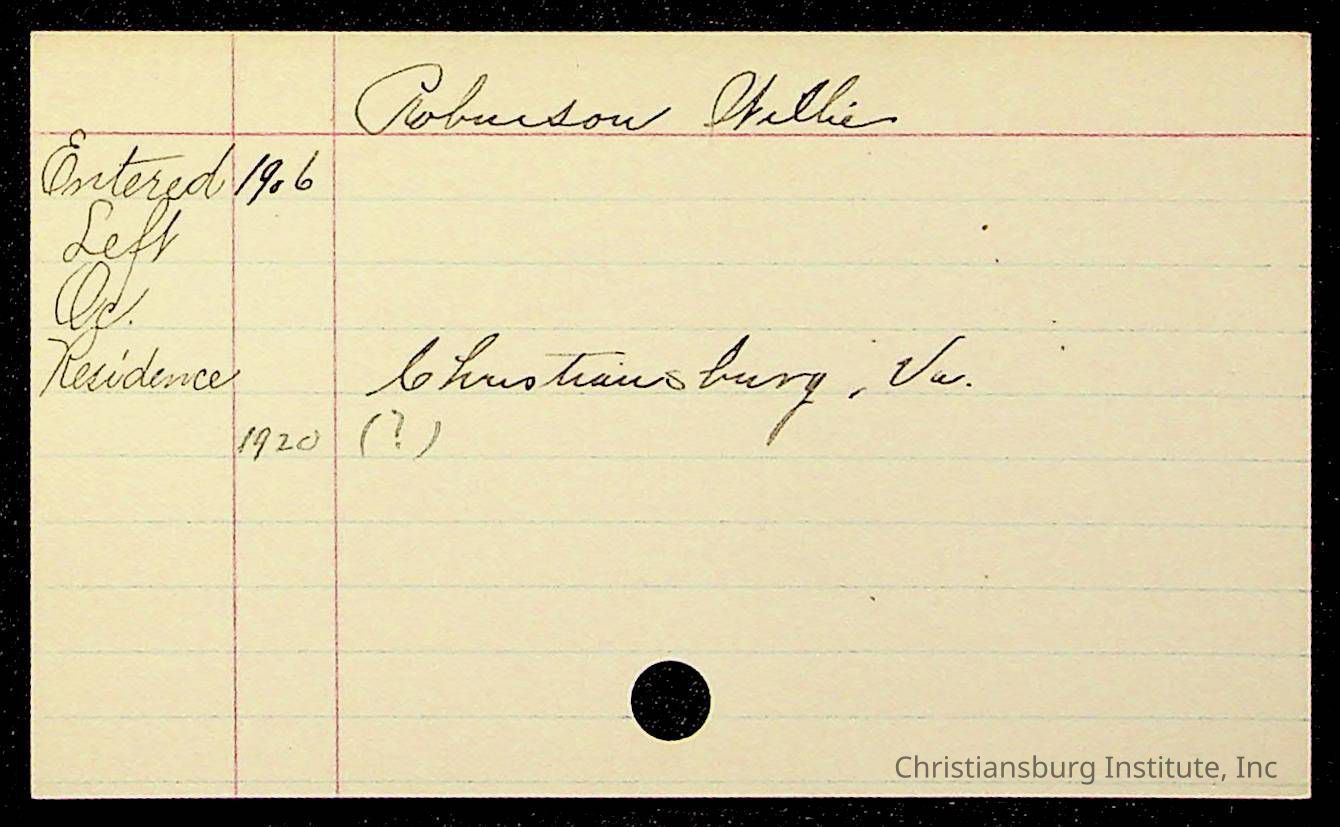 Robinson Willie
Entered 1906
Left
Oc.
Residence Christiansburg, Va.
1920 (?)
Christiansburg Institute, Inc